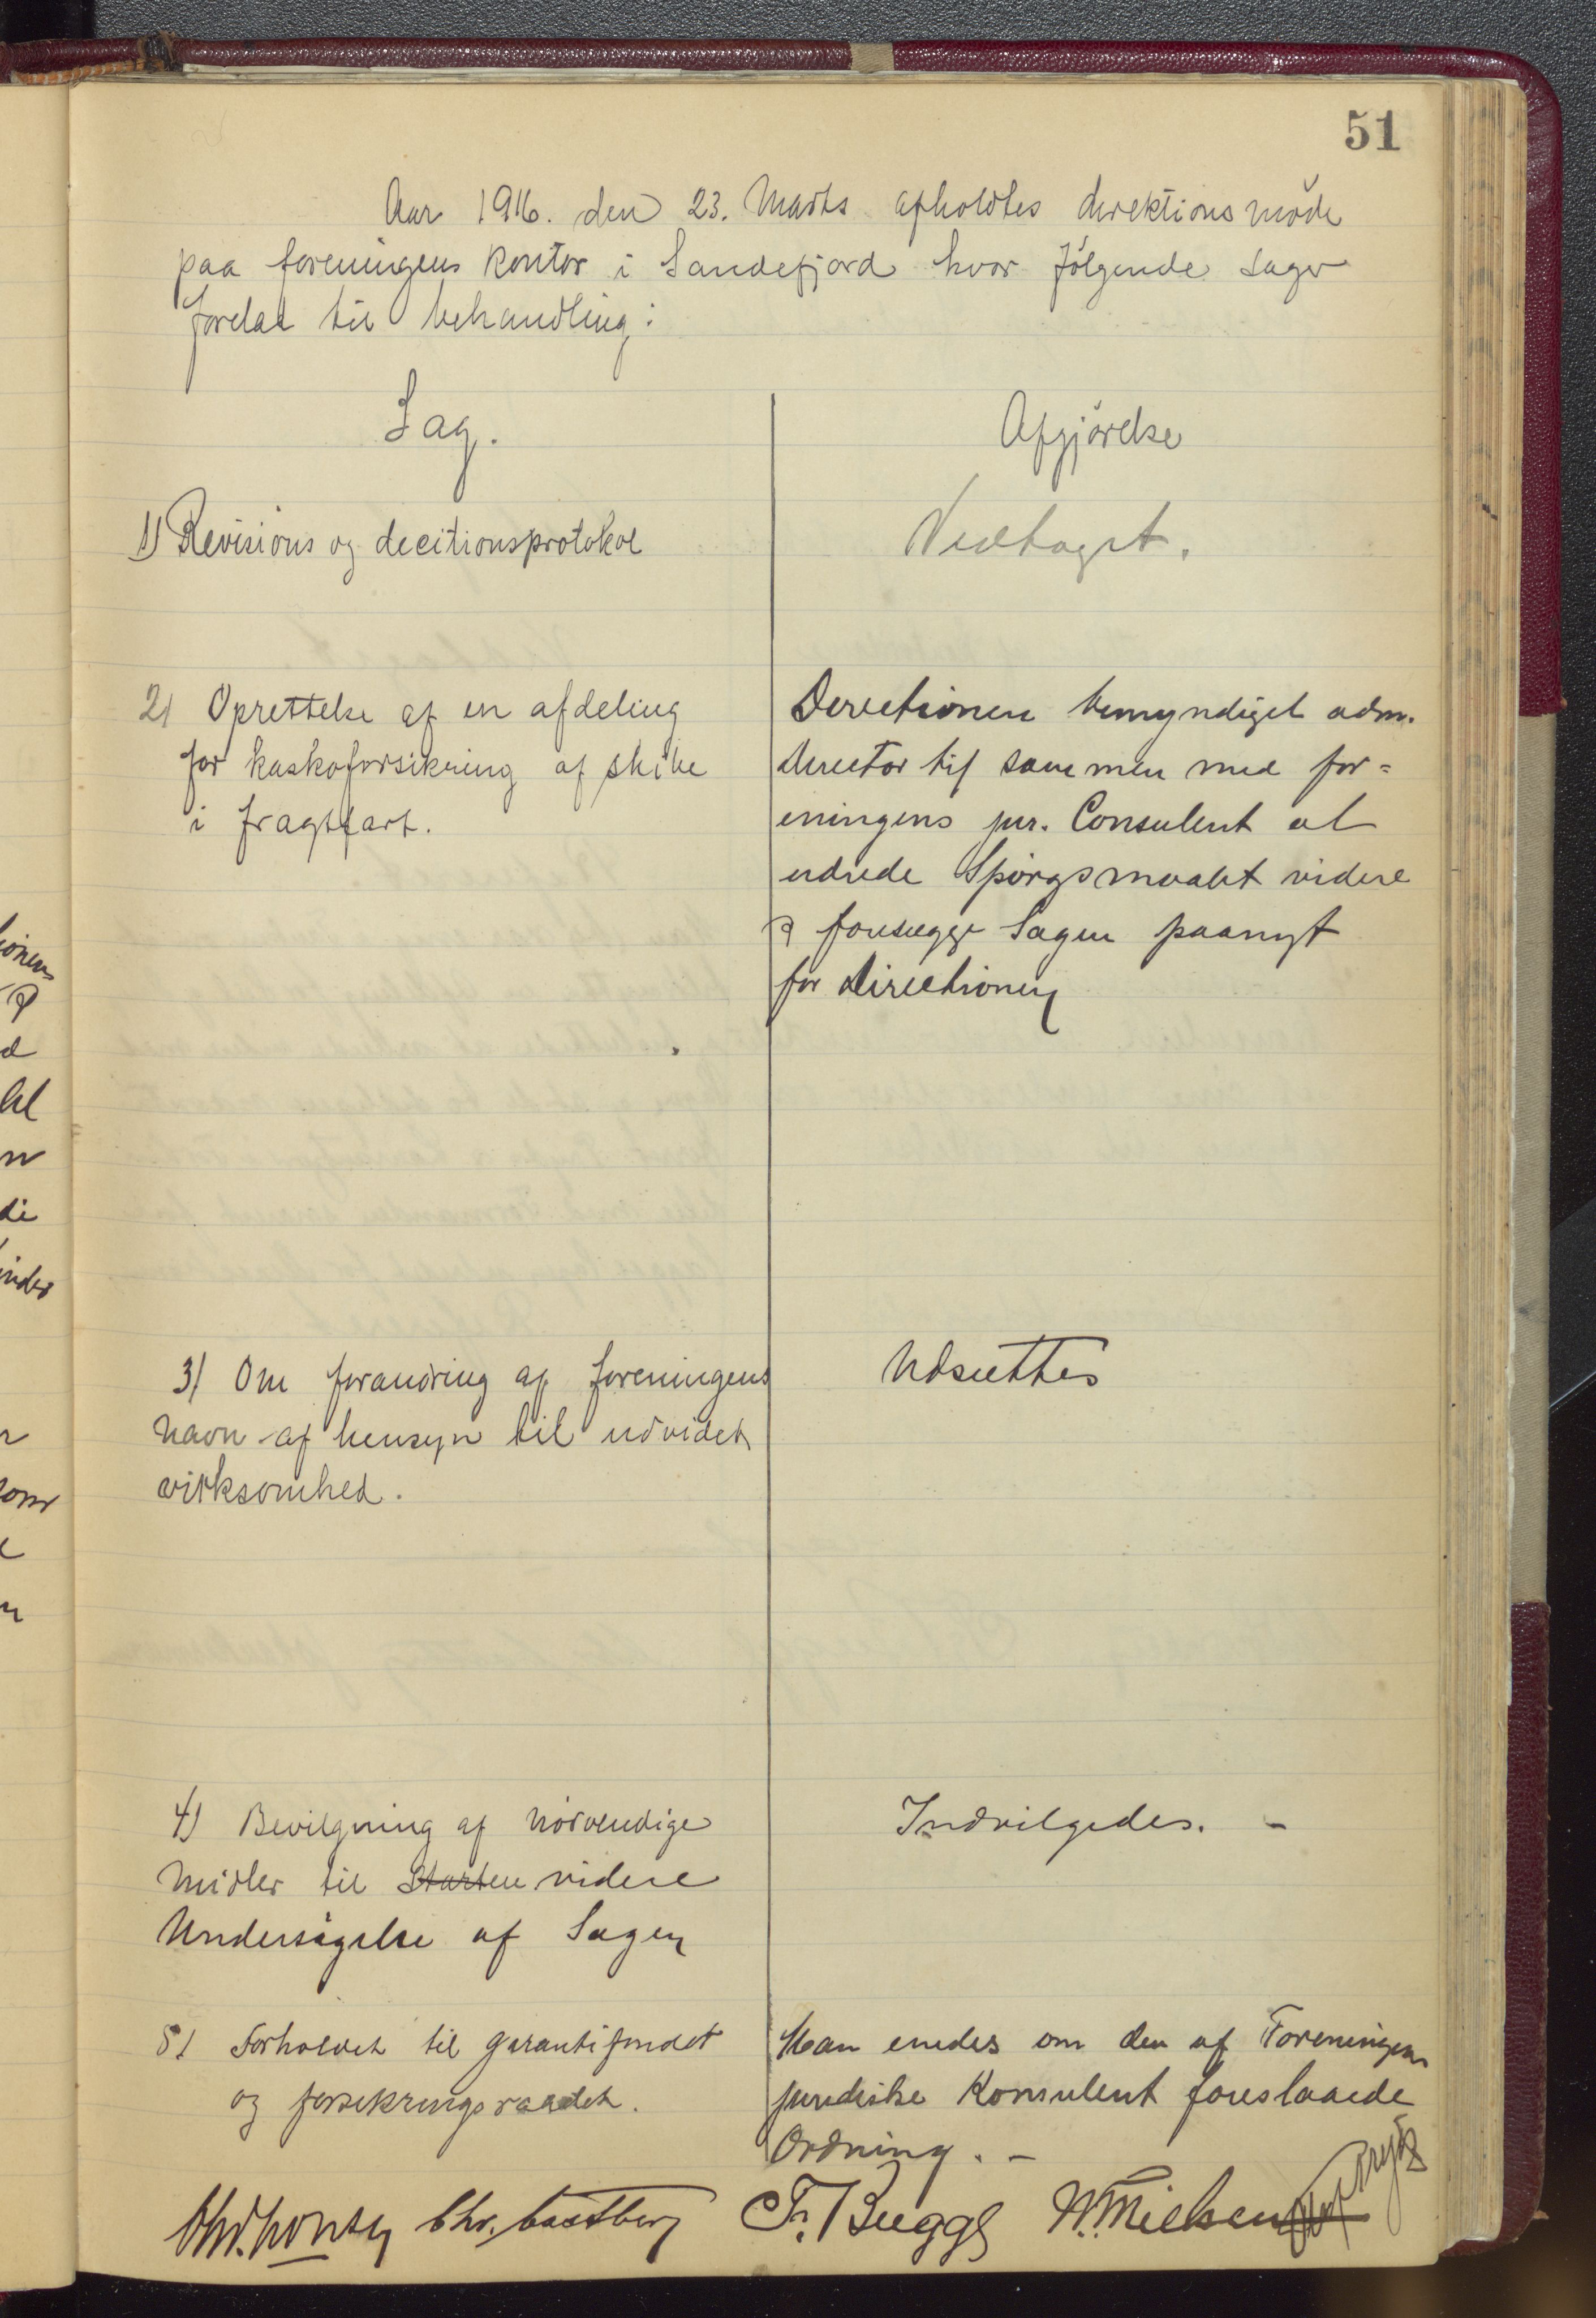 51
Aar 1916. den 23. Marts afholdtes direktionsmöde
paa foreningens kontor i Sandefjord hvor fölgende sager
forelaa til behandling:
Sag.
1) Revisions og decitionsprotokol
2) Oprettelse af en afdeling
for kaskoforsikring af skibe
i fragtfart.
3) Om forandring af foreningens
navn af hensyn til udvidet
virksomhed.
4) Bevilgning af nödvendige
midler til Starten videre
Undersögelse af Sagen
5) Forholdet til garantifondet
og forsikringsraadet.
Afgjörelse
Vedtaget.
Directionen bemyndiget adm.
director til sammen med for=
eningens jur. Consulent at
udrede Spörgsmaalet videre
& forelægge Sagen paanyt
for Directionen
Udsættes
Indvilgedes. -
Man enedes om den af Foreningens
juridiske Konsulent foreslaaede
Ordning. -
Chr. Castberg Fr. Bugge W. Nielsen